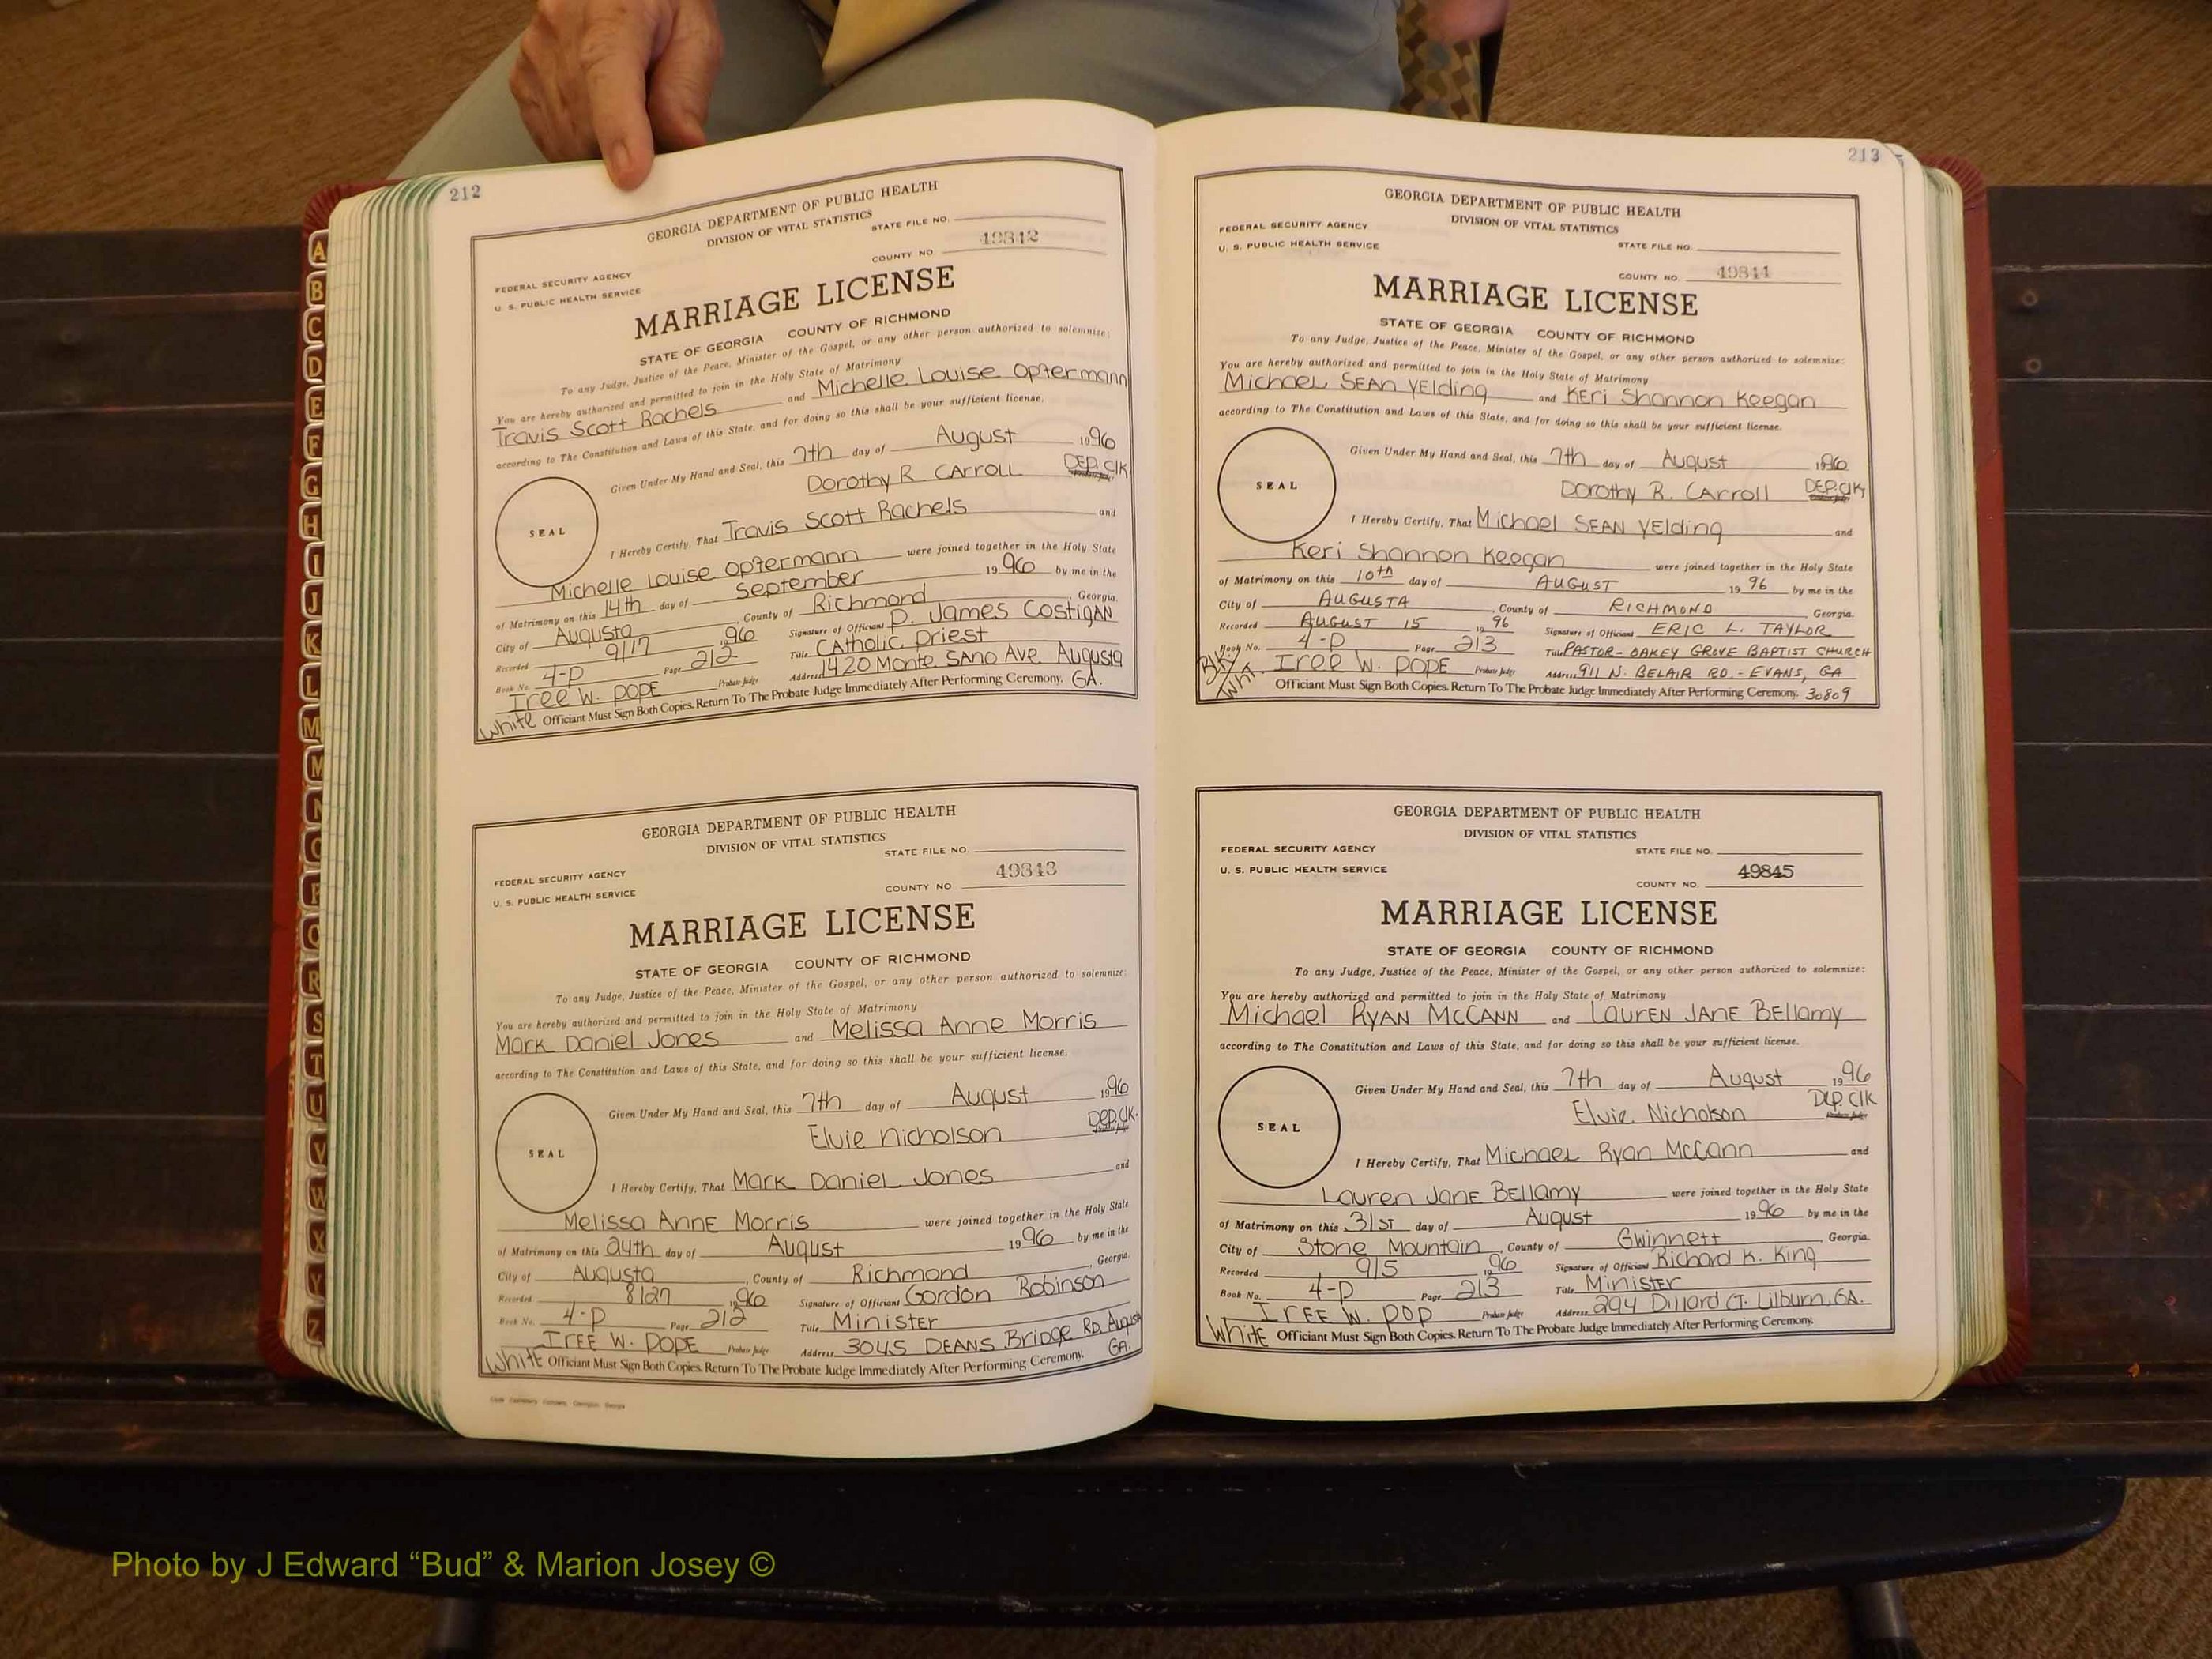 212
GEORGIA DEPARTMENT OF PUBLIC HEALTH
DIVISION OF VITAL STATISTICS
STATE FILE NO.
49842
COUNTY NO
FEDERAL SECURITY AGENCY
U. S. PUBLIC HEALTH SERVICE
MARRIAGE LICENSE
STATE OF GEORGIA COUNTY OF RICHMOND
To any Judge, Justice of the Peace, Minister of the Gospel, or any other person authorized to solemnize:
You are hereby authorized and permitted to join in the Holy State of Matrimony
Travis Scott Rachels and Michelle Louise Opfermann
according to The Constitution and Laws of this State, and for doing so this shall be your sufficient license.
Given Under My Hand and Seal, this 7th day of August 1996
Dorothy R. Carroll DEP. Clk.
SEAL
I Hereby Certify, That Travis Scott Rachels and
Michelle Louise Opfermann were joined together in the Holy State
of Matrimony on this 14th day of September 1996 by me in the
City of Augusta, County of Richmond, Georgia.
Recorded 9/17 1996 Signature of Officiant P. James Costigan
Book No. 4-P Page 212 Title Catholic Priest
Iree W. Pope Probate Judge Address 1420 Monte Sano Ave Augusta GA.
White Officiant Must Sign Both Copies. Return To The Probate Judge Immediately After Performing Ceremony.
GEORGIA DEPARTMENT OF PUBLIC HEALTH
DIVISION OF VITAL STATISTICS
STATE FILE NO.
49843
COUNTY NO
FEDERAL SECURITY AGENCY
U. S. PUBLIC HEALTH SERVICE
MARRIAGE LICENSE
STATE OF GEORGIA COUNTY OF RICHMOND
To any Judge, Justice of the Peace, Minister of the Gospel, or any other person authorized to solemnize:
You are hereby authorized and permitted to join in the Holy State of Matrimony
Mark Daniel Jones and Melissa Anne Morris
according to The Constitution and Laws of this State, and for doing so this shall be your sufficient license.
Given Under My Hand and Seal, this 7th day of August 1996
Elvie Nicholson DEP. Clk.
SEAL
I Hereby Certify, That Mark Daniel Jones and
Melissa Anne Morris were joined together in the Holy State
of Matrimony on this 24th day of August 1996 by me in the
City of Augusta, County of Richmond, Georgia.
Recorded 8/27 1996 Signature of Officiant Gordon Robinson
Book No. 4-P Page 212 Title Minister
Iree W. Pope Probate Judge Address 3045 Deans Bridge Rd. Augusta GA.
White Officiant Must Sign Both Copies. Return To The Probate Judge Immediately After Performing Ceremony.
213
GEORGIA DEPARTMENT OF PUBLIC HEALTH
DIVISION OF VITAL STATISTICS
FEDERAL SECURITY AGENCY
U. S. PUBLIC HEALTH SERVICE
STATE FILE NO.
COUNTY NO. 49844
MARRIAGE LICENSE
STATE OF GEORGIA COUNTY OF RICHMOND
To any Judge, Justice of the Peace, Minister of the Gospel, or any other person authorized to solemnize:
You are hereby authorized and permitted to join in the Holy State of Matrimony
Michael Sean Yelding and Keri Shannon Keegan
according to The Constitution and Laws of this State, and for doing so this shall be your sufficient license.
Given Under My Hand and Seal, this 7th day of August 1996
Dorothy R. Carroll DEP. Clk
SEAL
I Hereby Certify, That Michael Sean Yelding and
Keri Shannon Keegan were joined together in the Holy State
of Matrimony on this 10th day of AUGUST 1996 by me in the
City of AUGUSTA, County of RICHMOND, Georgia.
Recorded AUGUST 15 1996 Signature of Officiant ERIC L. TAYLOR
Book No. 4-P Page 213 Title PASTOR - OAKEY GROVE BAPTIST CHURCH
Iree W. Pope Probate Judge Address 911 N. BELAIR RD. - EVANS, GA
Blk/Wht. Officiant Must Sign Both Copies. Return To The Probate Judge Immediately After Performing Ceremony. 30809
GEORGIA DEPARTMENT OF PUBLIC HEALTH
DIVISION OF VITAL STATISTICS
FEDERAL SECURITY AGENCY
STATE FILE NO.
U. S. PUBLIC HEALTH SERVICE
COUNTY NO. 49845
MARRIAGE LICENSE
STATE OF GEORGIA COUNTY OF RICHMOND
To any Judge, Justice of the Peace, Minister of the Gospel, or any other person authorized to solemnize:
You are hereby authorized and permitted to join in the Holy State of Matrimony
Michael Ryan McCann and Lauren Jane Bellamy
according to The Constitution and Laws of this State, and for doing so this shall be your sufficient license.
Given Under My Hand and Seal, this 7th day of August 1996
Elvie Nicholson Dep. Clk
SEAL
I Hereby Certify, That Michael Ryan McCann and
Lauren Jane Bellamy were joined together in the Holy State
of Matrimony on this 31st day of August 1996 by me in the
City of Stone Mountain, County of Gwinnett, Georgia.
Recorded 9/5 1996 Signature of Officiant Richard K. King
Book No. 4-P Page 213 Title Minister
Iree W. Pop Probate Judge Address 294 Dillard Ct. Lilburn, GA.
White Officiant Must Sign Both Copies. Return To The Probate Judge Immediately After Performing Ceremony.
A
B
C
D
E
F
G
H
I
J
K
L
M
M
N
O
P
Q
R
S
T
U
V
W
X
Y
Z
Photo by J Edward “Bud” & Marion Josey ©